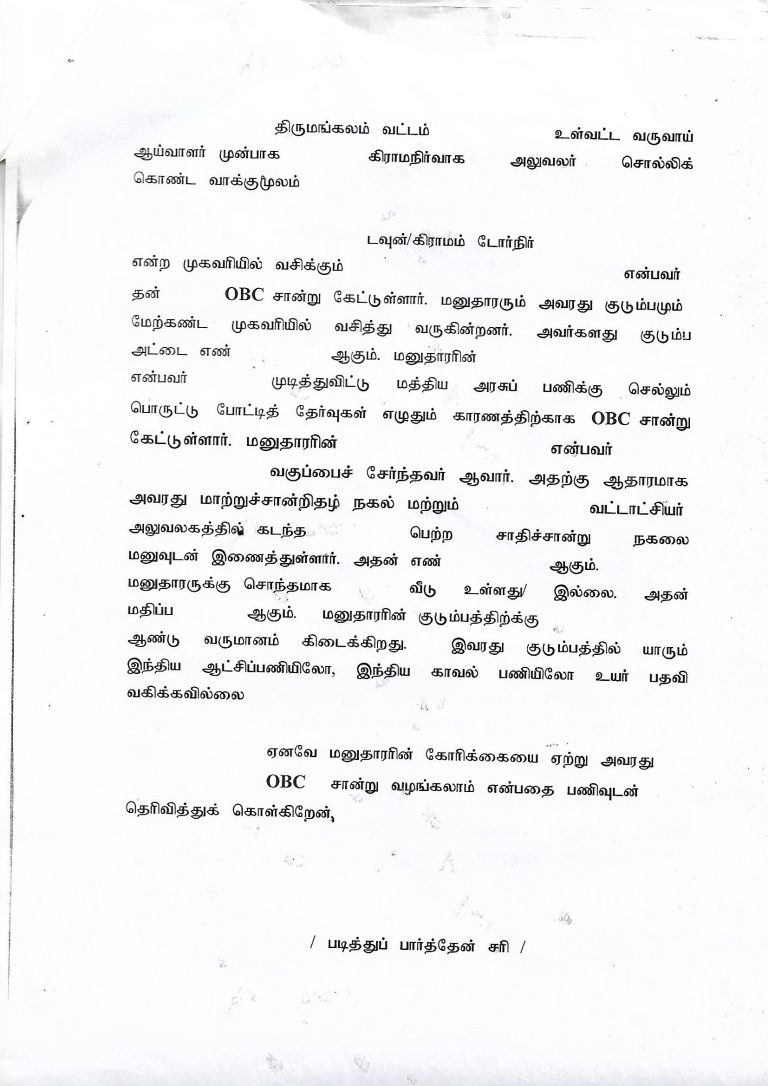 திருமங்கலம் வட்டம் உள்வட்ட வருவாய்
ஆய்வாளர் முன்பாக கிராமநிர்வாக அலுவலர் சொல்லிக்
கொண்ட வாக்குமூலம்
டவுன்/கிராமம் டோர்நிர்
என்ற முகவரியில் வசிக்கும் என்பவர்
தன் OBC சான்று கேட்டுள்ளார். மனுதாரரும் அவரது குடும்பமும்
மேற்கண்ட முகவரியில் வசித்து வருகின்றனர். அவர்களது குடும்ப
அட்டை எண் ஆகும். மனுதாரரின்
என்பவர் முடித்துவிட்டு மத்திய அரசுப் பணிக்கு செல்லும்
பொருட்டு போட்டித் தேர்வுகள் எழுதும் காரணத்திற்காக OBC சான்று
கேட்டுள்ளார். மனுதாரரின் என்பவர்
வகுப்பைச் சேர்ந்தவர் ஆவார். அதற்கு ஆதாரமாக
அவரது மாற்றுச்சான்றிதழ் நகல் மற்றும் வட்டாட்சியர்
அலுவலகத்தில் கடந்த பெற்ற சாதிச்சான்று நகலை
மனுவுடன் இணைத்துள்ளார். அதன் எண் ஆகும்.
மனுதாரருக்கு சொந்தமாக வீடு உள்ளது/ இல்லை. அதன்
மதிப்ப ஆகும். மனுதாரரின் குடும்பத்திற்க்கு
ஆண்டு வருமானம் கிடைக்கிறது. இவரது குடும்பத்தில் யாரும்
இந்திய ஆட்சிப்பணியிலோ, இந்திய காவல் பணியிலோ உயர் பதவி
வகிக்கவில்லை
ஏனவே மனுதாரரின் கோரிக்கையை ஏற்று அவரது
OBC சான்று வழங்கலாம் என்பதை பணிவுடன்
தெரிவித்துக் கொள்கிறேன்,
/ படித்துப் பார்த்தேன் சரி /